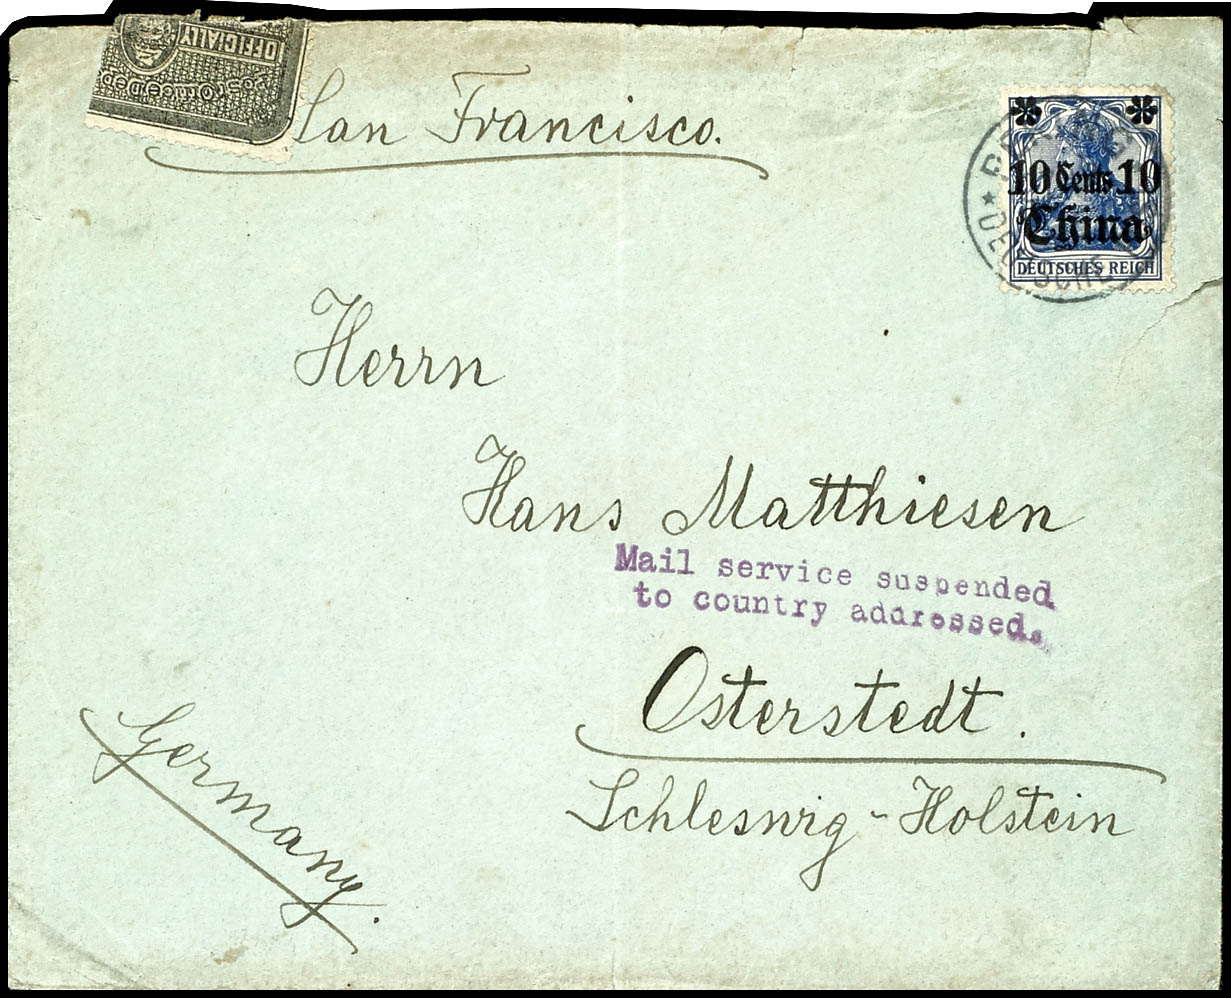 OFFICIALLY
Post Office Dep
San Francisco.
10 Cents 10
China
DEUTSCHES REICH
Herrn
Hans Matthiesen
Mail service suspended
to country addressed.
Osterstedt.
Schleswig-Holstein
Germany.